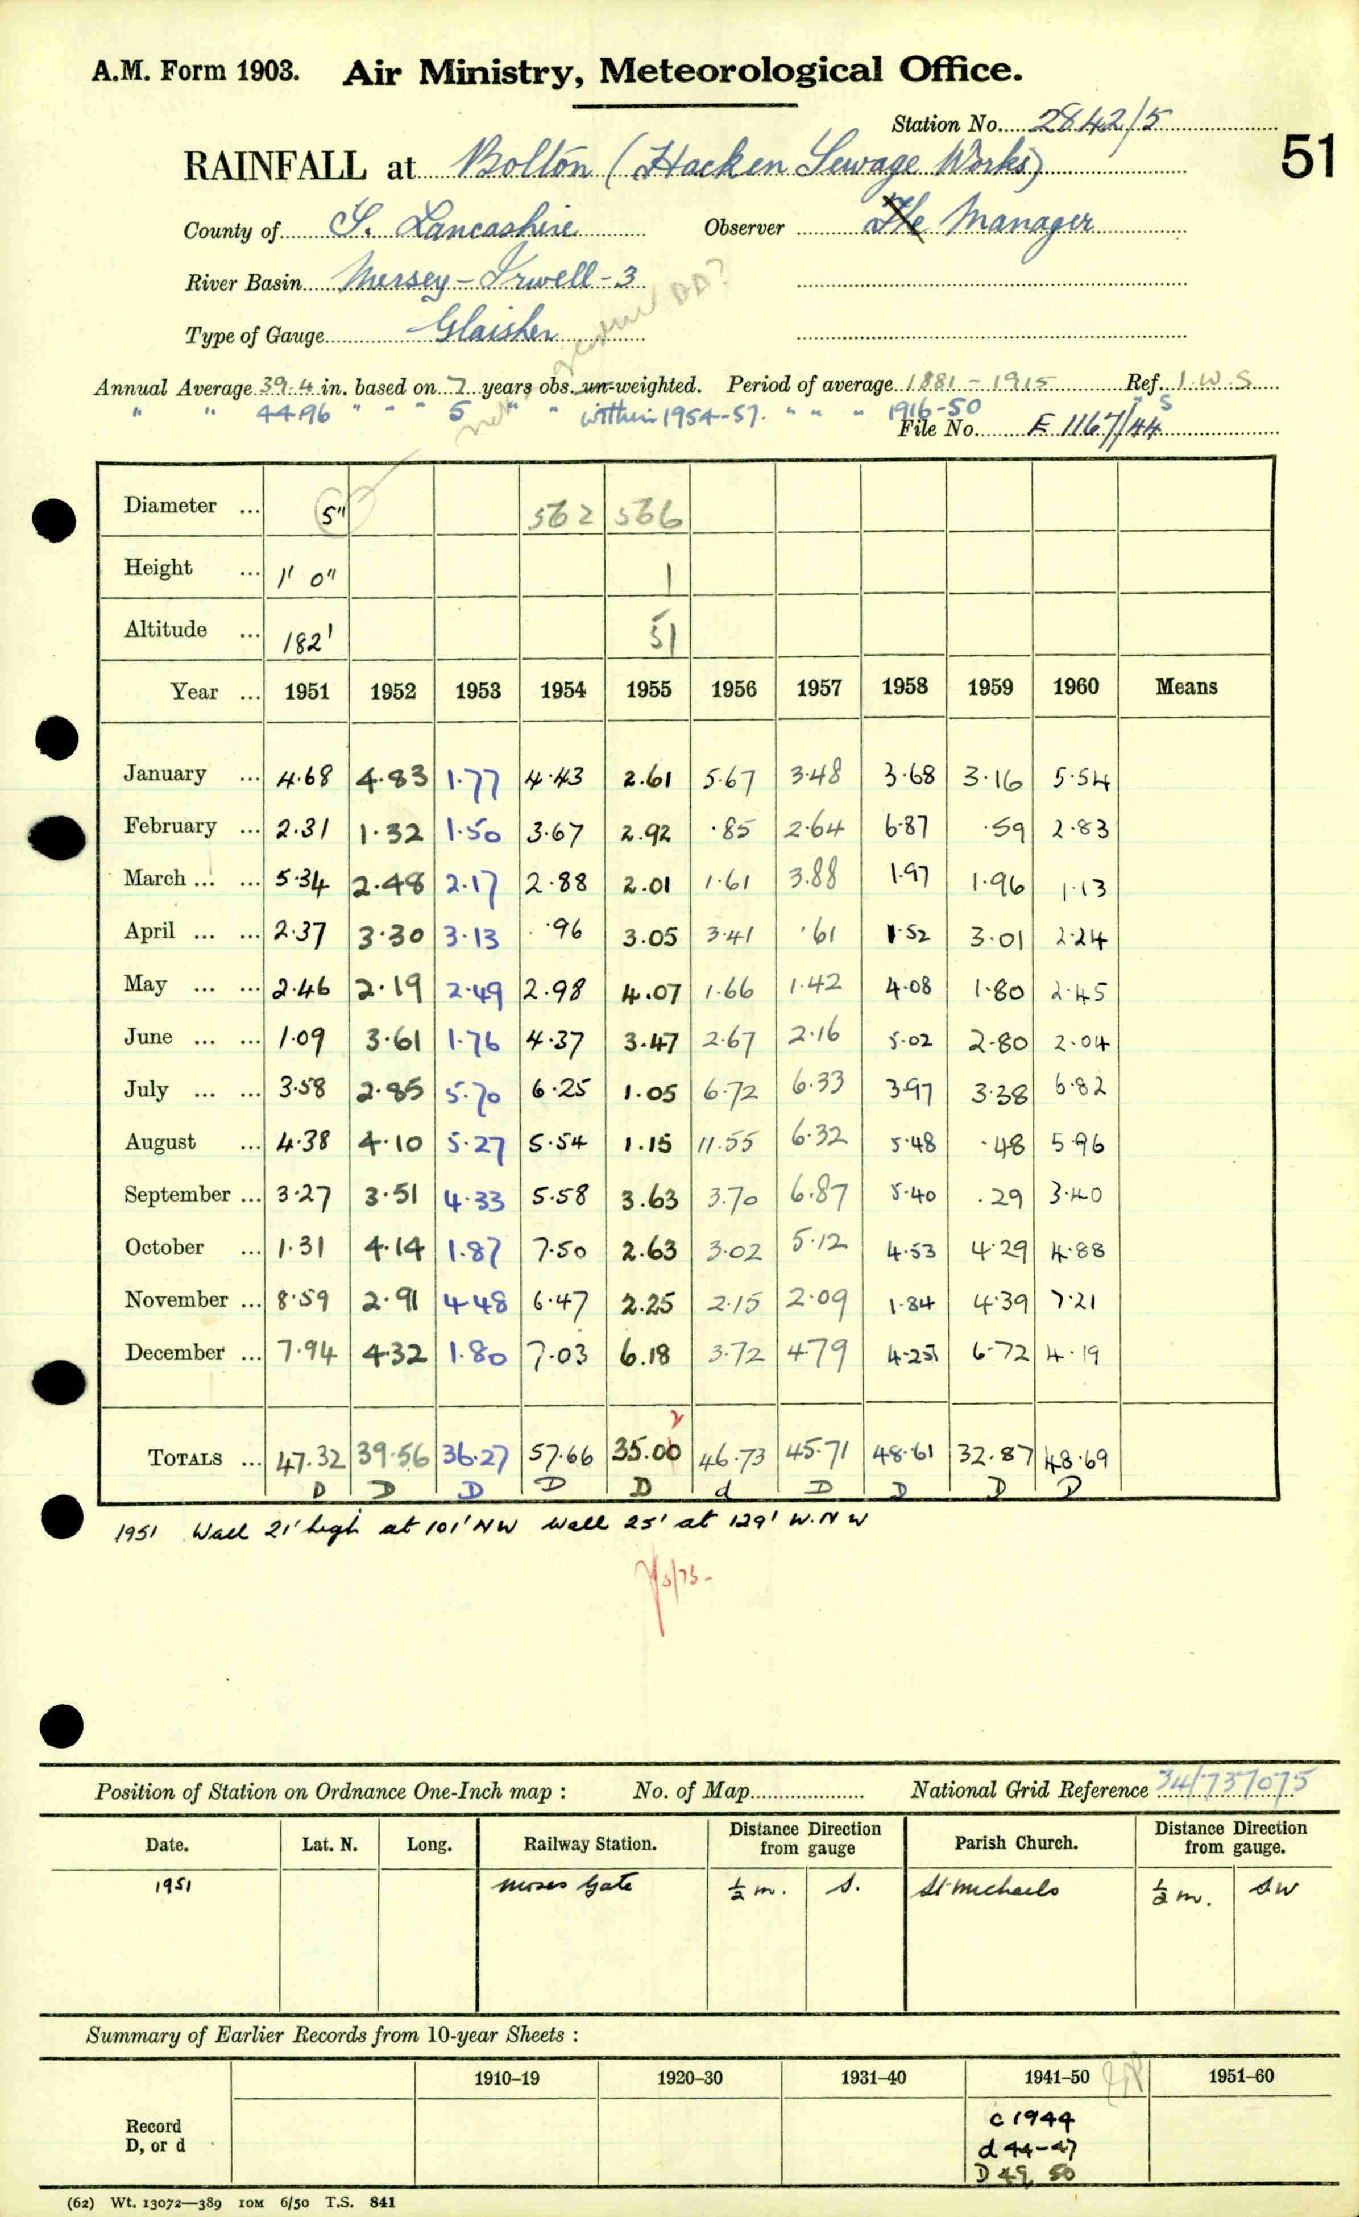 A.M. Form 1903. Air Ministry, Meteorological Office.
Station No. 2842/5
RAINFALL at Bolton (Hacken Sewage Works)
51
County of S. Lancashire Observer The Manager
River Basin Mersey - Irwell - 3
Type of Gauge Glaisher
Annual Average 39.4 in. based on 7 years obs. un-weighted. Period of average 1881 - 1915 Ref. I.W.S
" " 44.96 " " " 5 " " within 1954-57. " " " 1916-50 " S
File No. E 1167/44
Diameter ... 5" 562 566
Height ... 1' 0" 1
Altitude ... 182' 51
Year ... 1951 1952 1953 1954 1955 1956 1957 1958 1959 1960 Means
January ... 4.68 4.83 1.77 4.43 2.61 5.67 3.48 3.68 3.16 5.54
February ... 2.31 1.32 1.50 3.67 2.92 .85 2.64 6.87 .59 2.83
March ... ... 5.34 2.48 2.17 2.88 2.01 1.61 3.88 1.97 1.96 1.13
April ... ... 2.37 3.30 3.13 .96 3.05 3.41 .61 1.52 3.01 2.24
May ... ... 2.46 2.19 2.49 2.98 4.07 1.66 1.42 4.08 1.80 2.45
June ... ... 1.09 3.61 1.76 4.37 3.47 2.67 2.16 5.02 2.80 2.04
July ... ... 3.58 2.85 5.70 6.25 1.05 6.72 6.33 3.97 3.38 6.82
August ... 4.38 4.10 5.27 5.54 1.15 11.55 6.32 5.48 .48 5.96
September ... 3.27 3.51 4.33 5.58 3.63 3.70 6.87 5.40 .29 3.40
October ... 1.31 4.14 1.87 7.50 2.63 3.02 5.12 4.53 4.29 4.88
November ... 8.59 2.91 4.48 6.47 2.25 2.15 2.09 1.84 4.39 7.21
December ... 7.94 4.32 1.80 7.03 6.18 3.72 4.79 4.25 6.72 4.19
2
TOTALS ... 47.32 39.56 36.27 57.66 35.00 46.73 45.71 48.61 32.87 48.69
D D D D D d D D D D
1951 Wall 21' high at 101' NW Wall 25' at 129' W.N W
Position of Station on Ordnance One-Inch map : No. of Map National Grid Reference 34/737075
Date. Lat. N. Long. Railway Station. Distance Direction from gauge Parish Church. Distance Direction from gauge.
1951 Moses Gate ½ m. S. St Michaels ½ m. SW
Summary of Earlier Records from 10-year Sheets :
1910–19 1920–30 1931–40 1941–50 1951–60
Record D, or d
c 1944
d 44-47
D 49, 50
(62) Wt. 13072—389 10M 6/50 T.S. 841